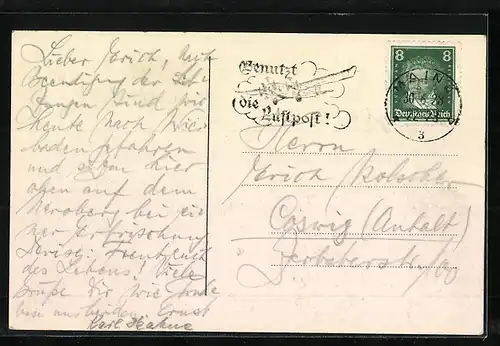 Lieber Erich, nach
Beendigung der
sind wir
heute nach Wies-
baden gefahren
und sitzen hier
oben auf dem
Neroberg bei ei-
ner Erfrischung
Devise: Freut euch
des Lebens! Viele
Grüße Dir wie
Ernst
Karl Hahne
Benutzt
die
Luftpost!
8 8
Deutsches Reich
MAINZ
3
Herrn
Erich
Coswig (Anhalt)
Zerbsterstr.